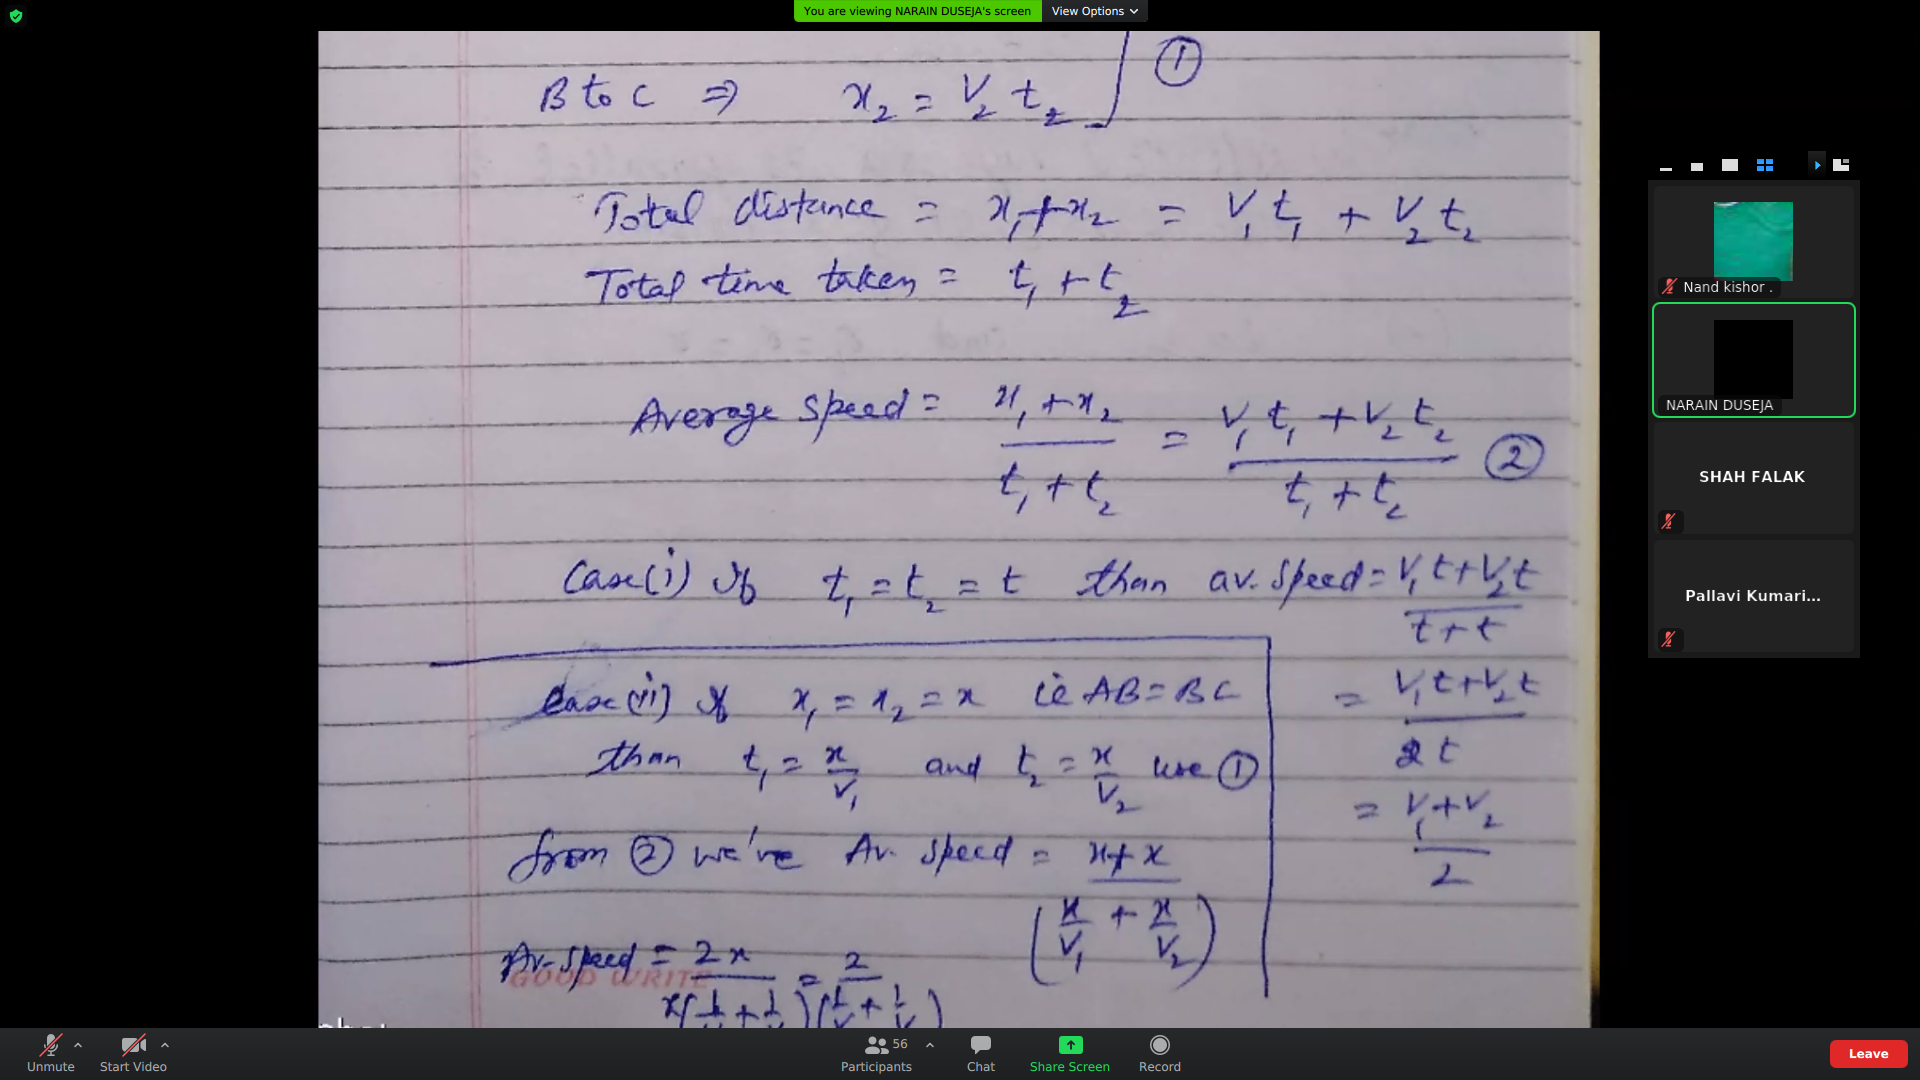 You are viewing NARAIN DUSEJA's screen View Options
B to C ⇒ x₂ = V₂ t₂ ①
Total distance = x₁+x₂ = V₁t₁ + V₂t₂
Total time taken = t₁ + t₂
Average speed = (x₁+x₂)/(t₁+t₂) = (V₁t₁+V₂t₂)/(t₁+t₂) ②
Case(i) If t₁ = t₂ = t than av. speed = (V₁t+V₂t)/(t+t)
= (V₁t+V₂t)/2t
= (V₁+V₂)/2
Case(ii) If x₁ = x₂ = x ie AB = BC
than t₁ = x/V₁ and t₂ = x/V₂ use ①
from ② we've Av. speed = (x+x)/(x/V₁ + x/V₂)
Av. speed = 2x/x(1/V + 1/V) = 2/(1/V + 1/V)
GOOD WRITE
Nand kishor .
NARAIN DUSEJA
SHAH FALAK
Pallavi Kumari...
Unmute
Start Video
56
Participants
Chat
Share Screen
Record
Leave